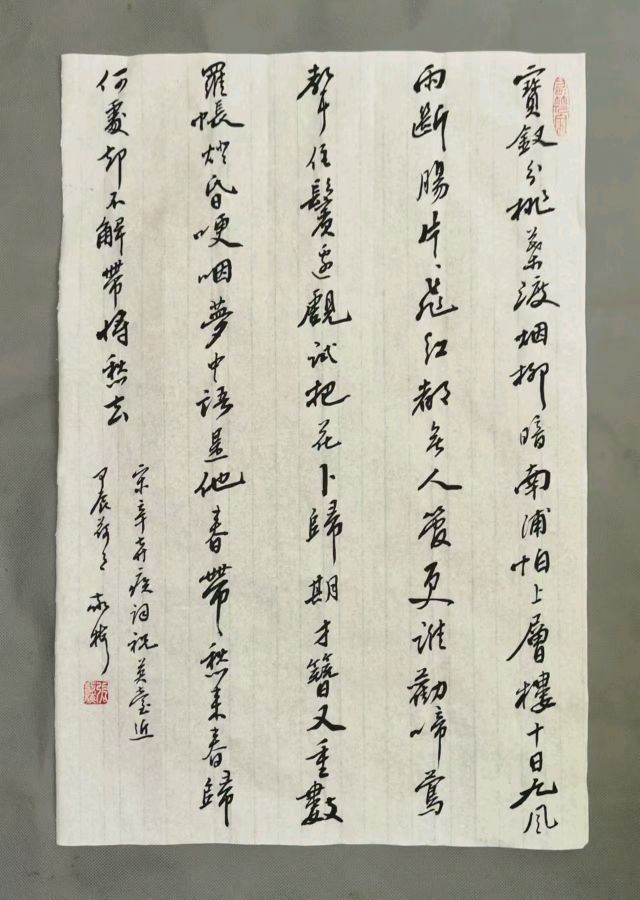 寶釵分桃葉渡烟柳暗南浦怕上層樓十日九風
雨斷腸片、飛紅都無人管更誰勸啼鶯
聲住鬢邊觀試把花卜歸期才簪又重數
羅帳燈昏哽咽夢中語是他春帶愁來春歸
何處却不解帶將愁去
宋辛弃疾詞祝英臺近
甲辰荷月